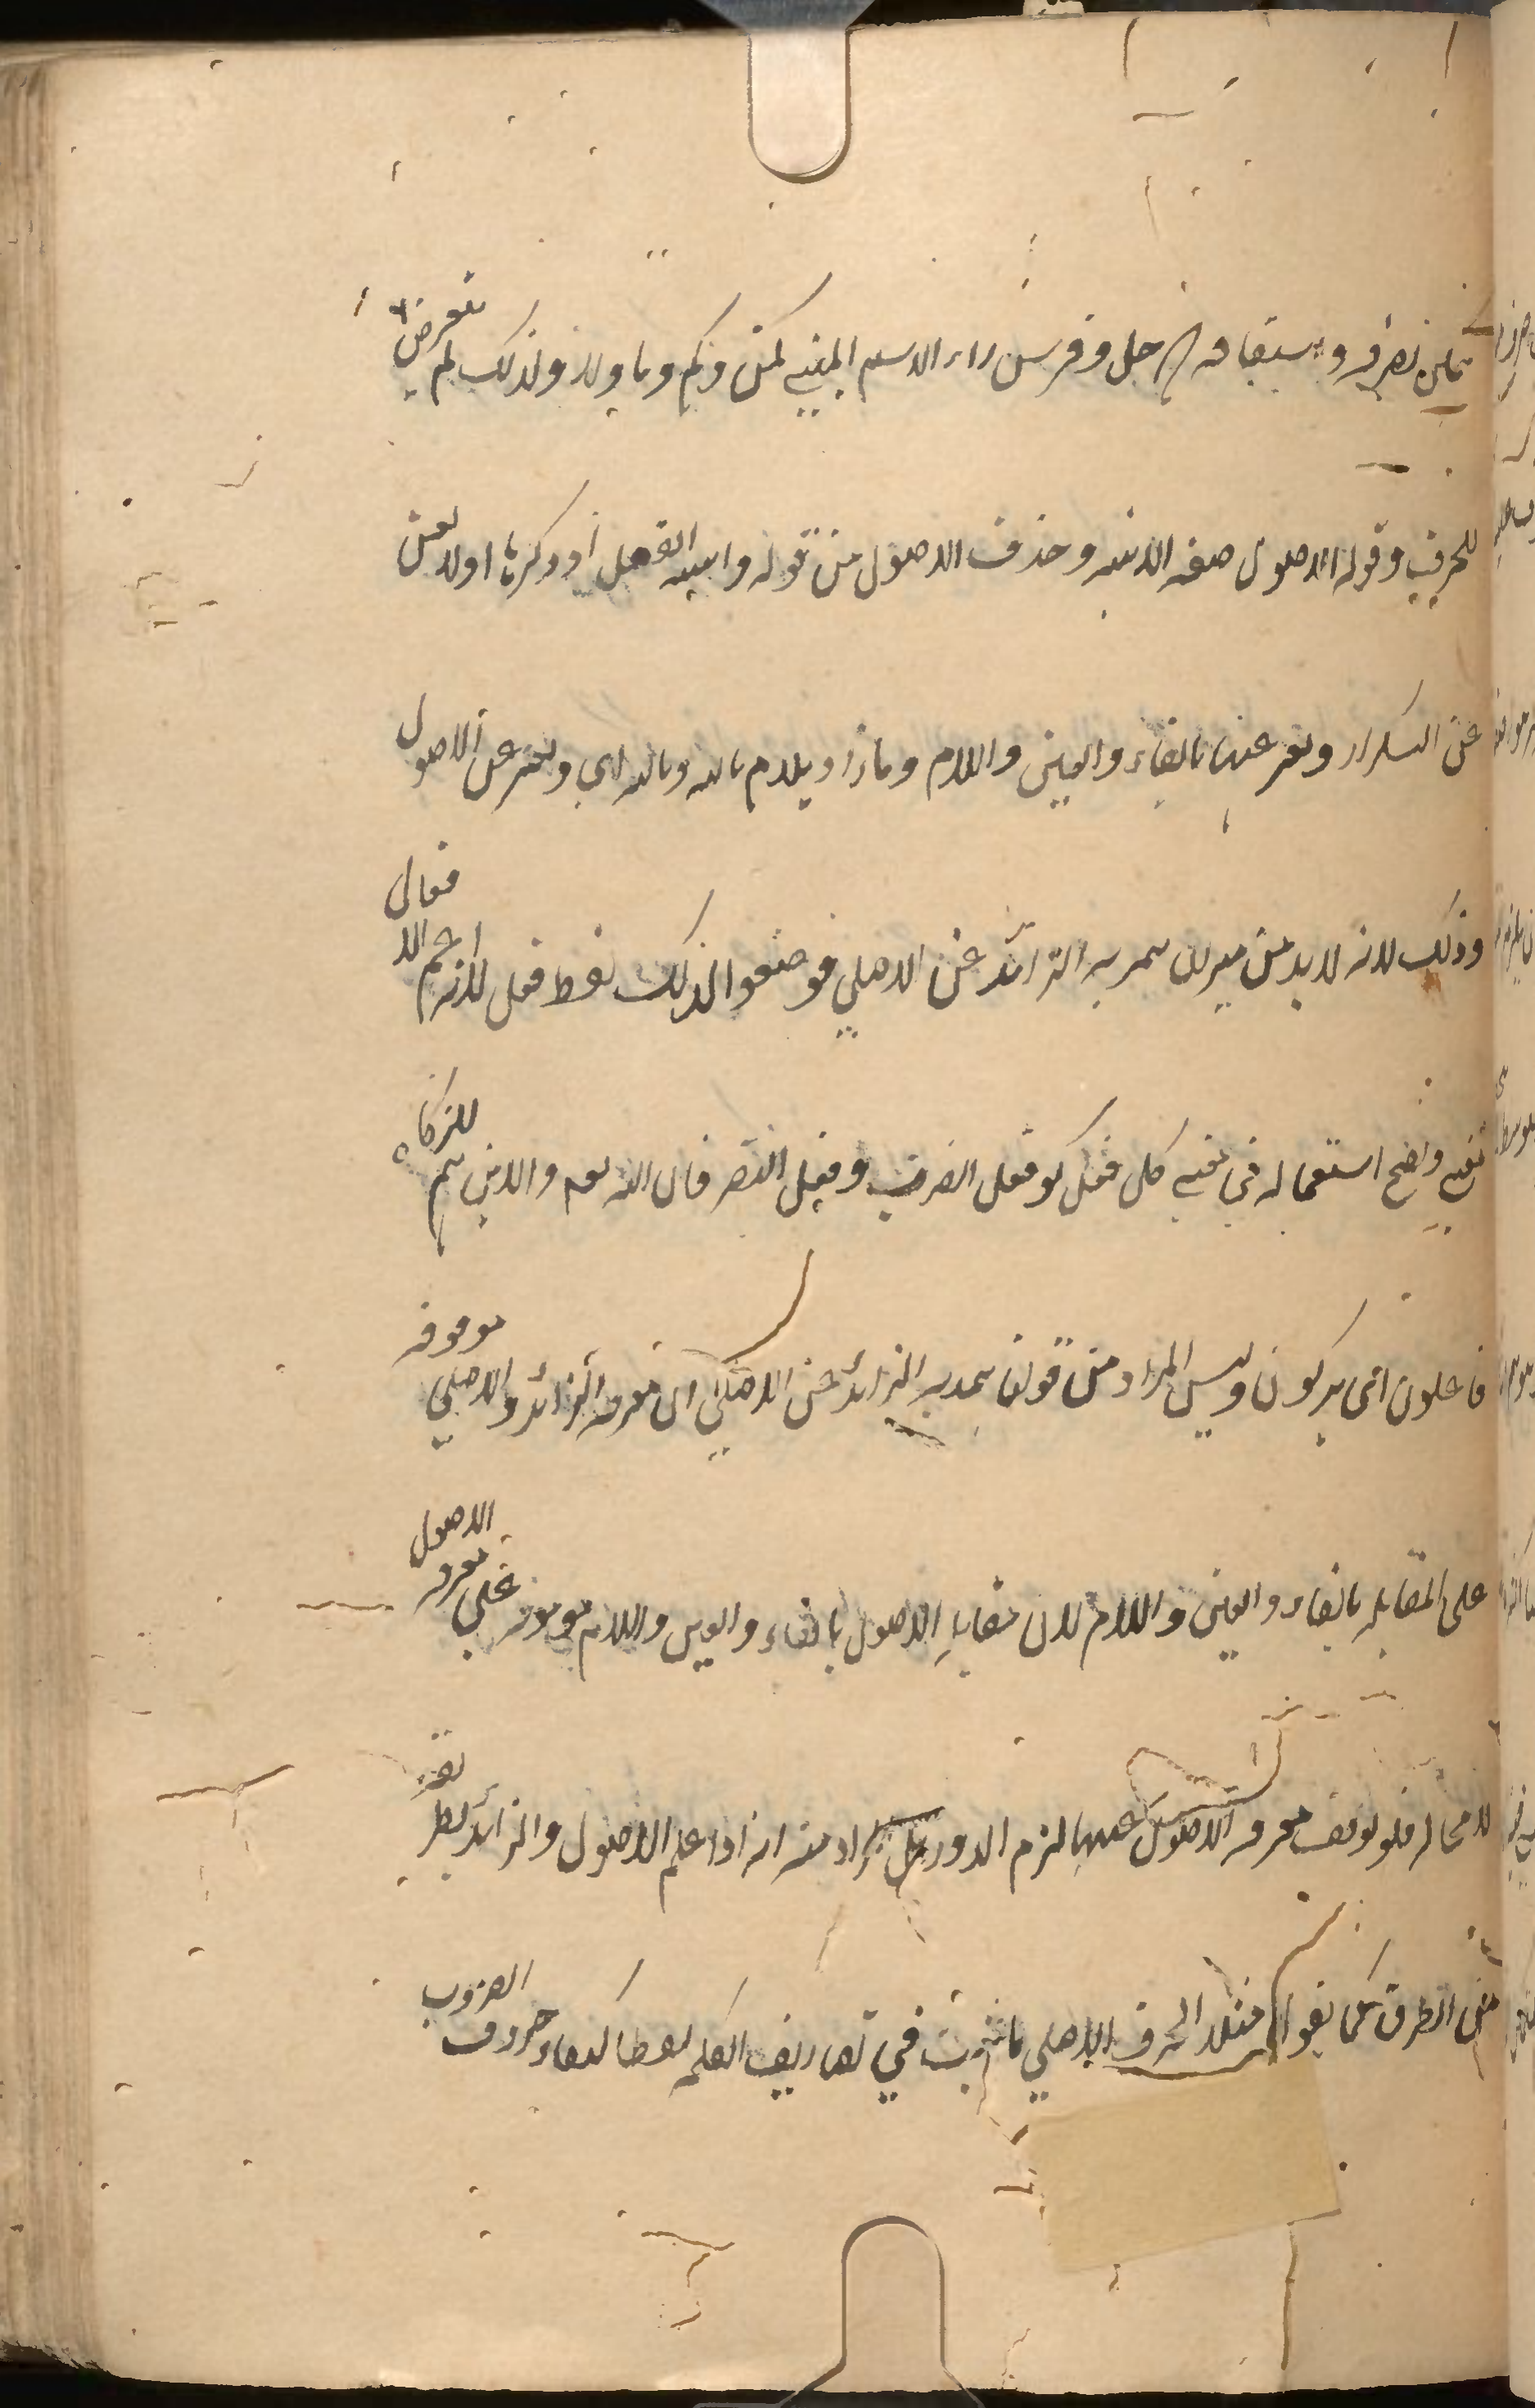 يمكن تصرفه واشتقاقه كرجل وفرس دون الاسم المبني كمن وكم وما ولذلك لم يتعرض
للحرف وقوله الاصول صفه الابنيه وحذف الاصول من قوله وابنيه الفعل اذ ذكرها اولا يغني
عن التكرار ويعبر عنها بالفاء والعين واللام وما زاد بلام ثانيه وثالثه اي ويعبر عن الاصول
وذلك لانه لا بد من ميزان يتميز به الزائد عن الاصلي فوضعوا لذلك لفظ فعل لانه اعم الافعال
معني واضح استعماله في معني كل فعل نحو فعل الضرب وفعل النصر قال الله تعه والذين هم للزكاة
فاعلون اي يزكون وليس المراد من قولنا يتميز به الزائد عن الاصلي ان معرفه الزائد والاصلي موقوفه
على المقابله بالفاء والعين واللام لان مقابله الاصول بالفاء والعين واللام موقوفه على معرفه الاصول
لا محاله فلو توقف معرفه الاصول عليها لزم الدور بل المراد منه انه اذا علم الاصول والزائد بطريق
من الطرق كما يقول مثلا الحرف الاصلي ما ثبت في تصاريف الكلمه لفظا كبقاء حروف الضرب